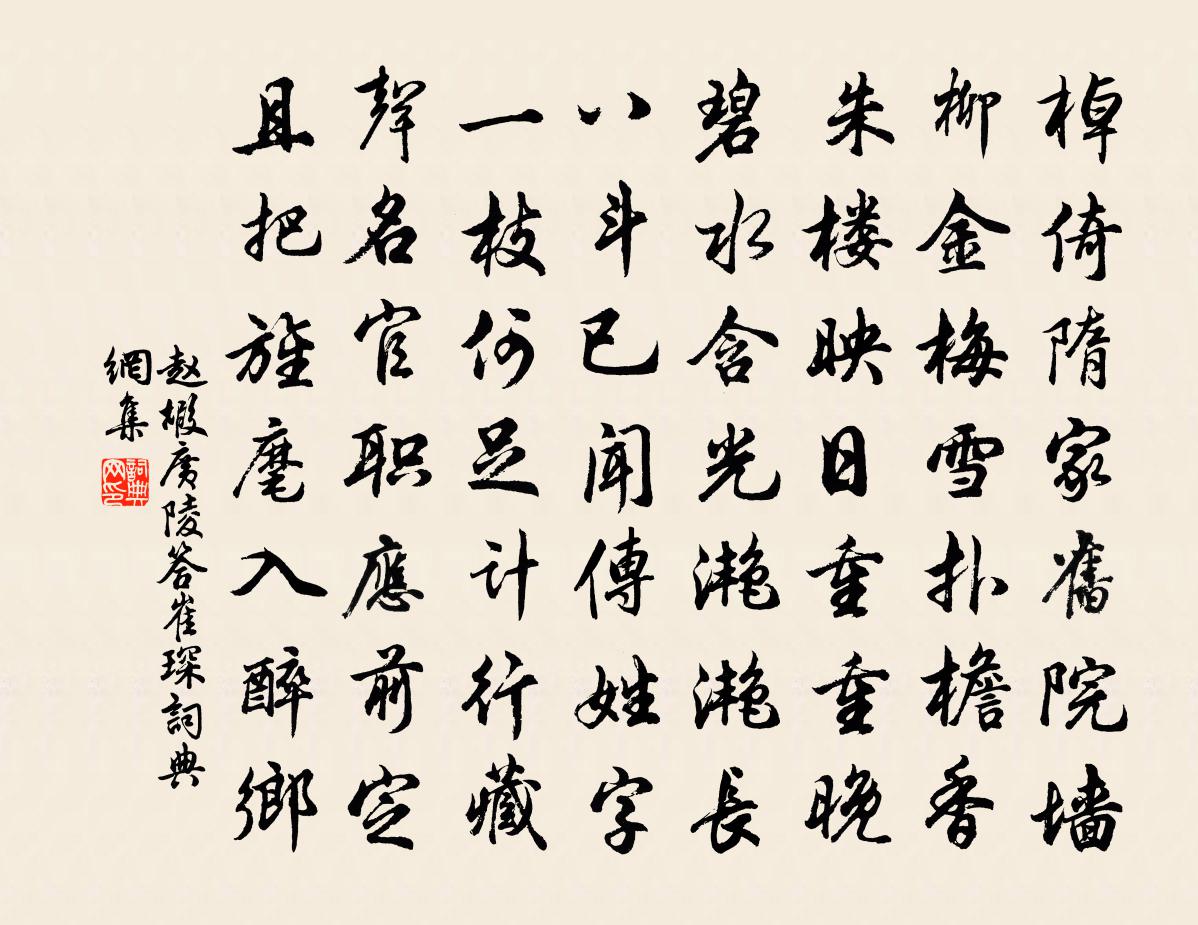 棹倚隋家舊院墙
柳金梅雪扑檐香
朱楼映日重重晚
碧水含光滟滟長
八斗已聞傳姓字
一枝何足计行藏
聲名官职應前定
且把旌麾入醉鄉
赵嘏广陵答崔琛詞典
網集
詞典
网印